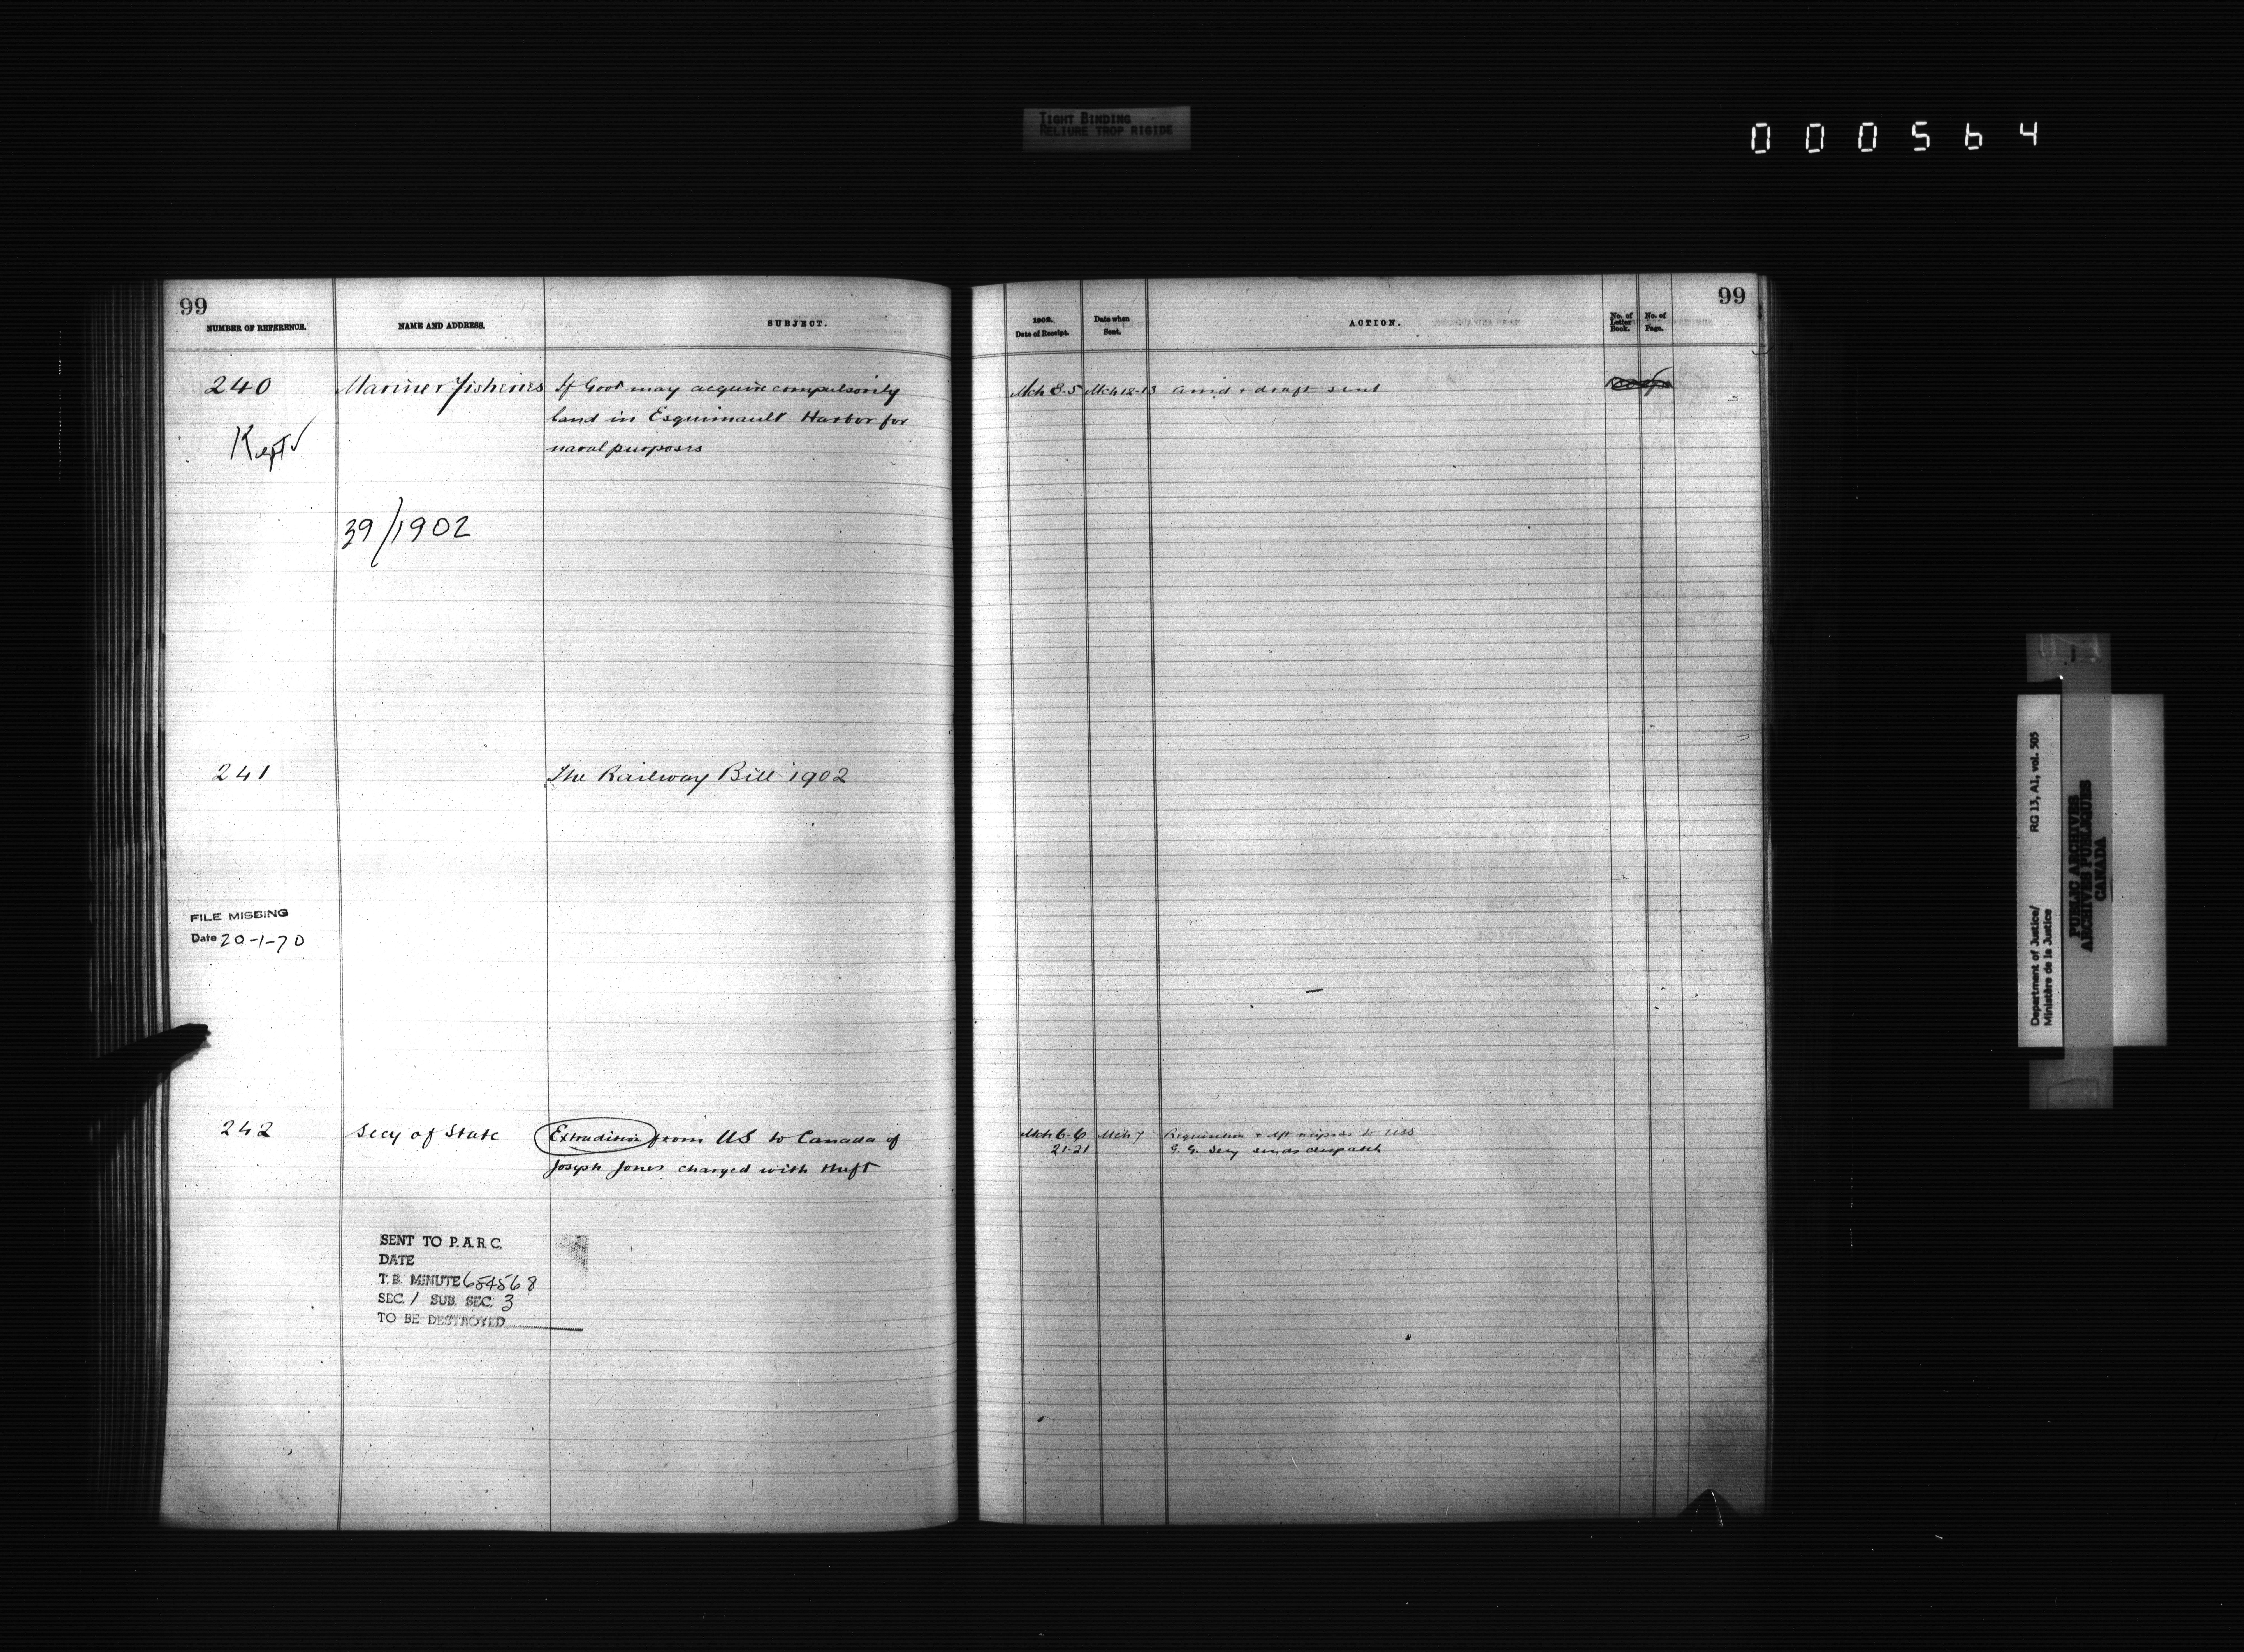 TIGHT BINDING
RELIURE TROP RIGIDE
000564
99
NUMBER OF REFERENCE. NAME AND ADDRESS. SUBJECT.
240 Marine & Fisheries If Govt may acquire compulsorily
land in Esquimault Harbor for
naval purposes
Kept
39/1902
241 The Railway Bill 1902
FILE MISSING
Date 20-1-70
242 Secy of State Extradition from US to Canada of
Joseph Jones charged with theft
SENT TO P.A.R.C.
DATE
T.B. MINUTE 654568
SEC. 1 SUB. SEC. 3
TO BE DESTROYED
99
1902.
Date of Receipt. Date when Sent. ACTION. No. of Letter Book. No. of Page.
Mch 8-5 Mch 12-13 & draft sent
Mch 6-6 Mch 7 Requisition & dft to USS
21-21 G.G. Secy sends despatch
Department of Justice/ RG 13, A1, vol. 505
Ministère de la Justice
PUBLIC ARCHIVES
ARCHIVES PUBLIQUES
CANADA